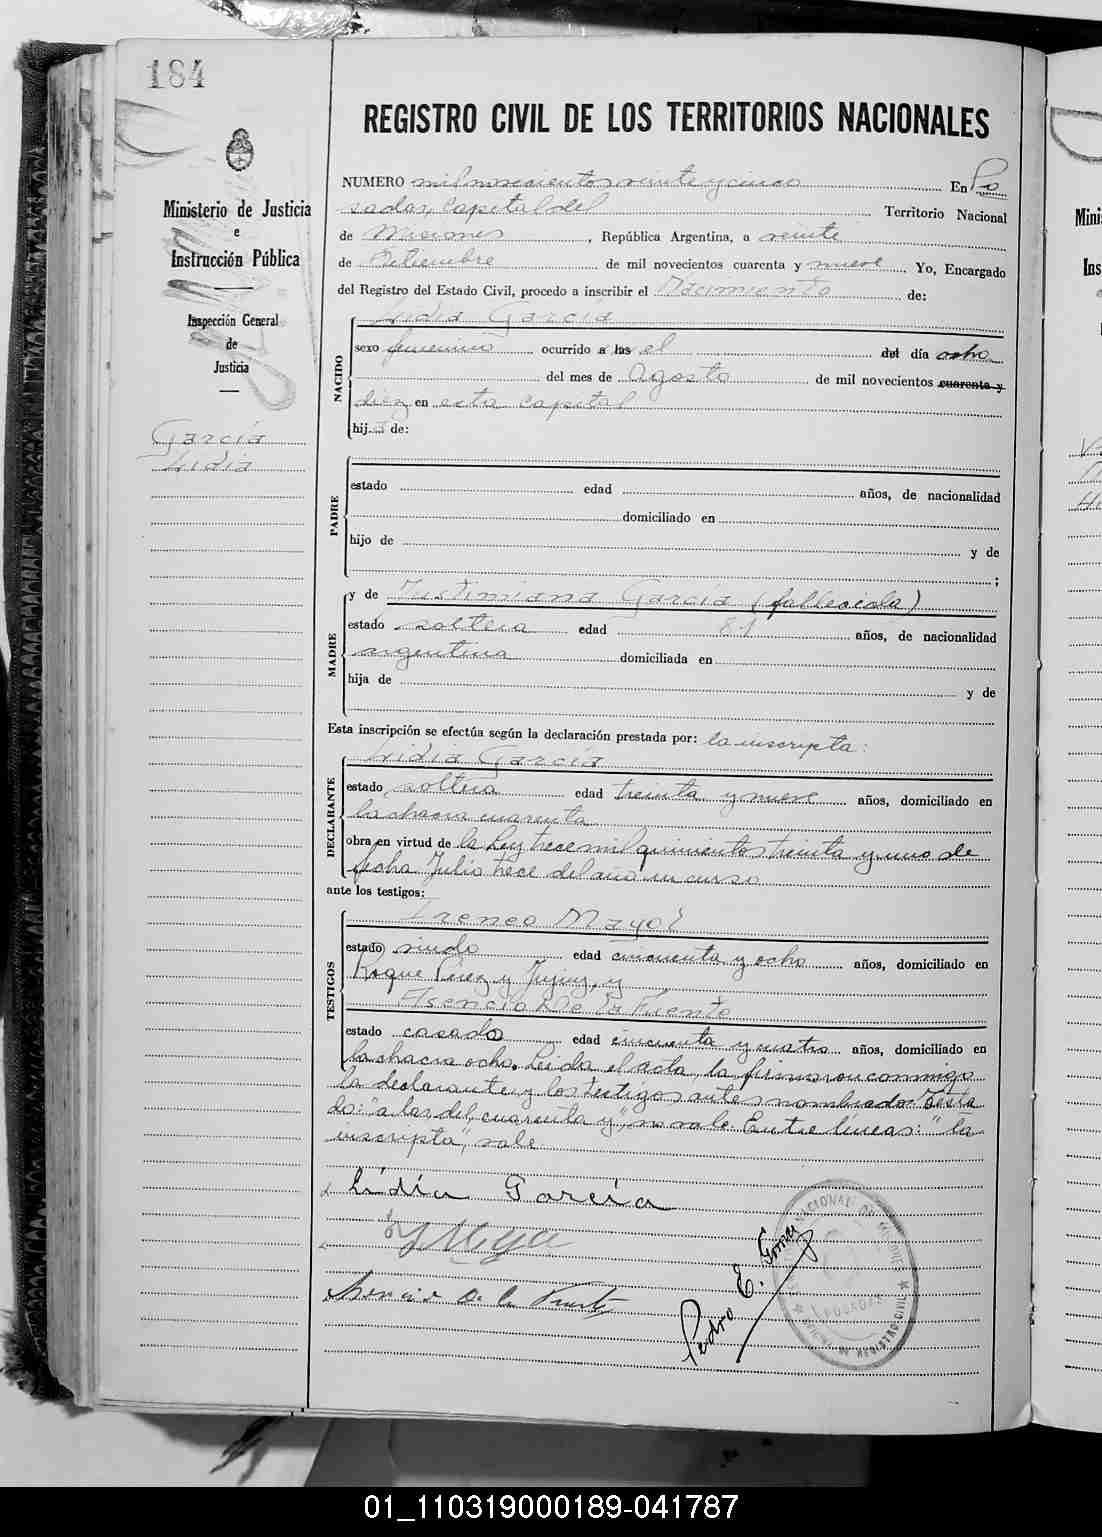 184
REGISTRO CIVIL DE LOS TERRITORIOS NACIONALES
Ministerio de Justicia
e
Instrucción Pública
Inspección General
de
Justicia
García
Lidia
NUMERO mil novecientos veinte y cinco En Po
sadas, Capital del Territorio Nacional
de Misiones, República Argentina, a veinte
de Setiembre de mil novecientos cuarenta y nueve. Yo, Encargado
del Registro del Estado Civil, procedo a inscribir el Nacimiento de:
NACIDO
Lidia García
sexo femenino ocurrido a las el del día ocho
del mes de Agosto de mil novecientos cuarenta y
diez en esta capital
hija de:
PADRE
estado edad años, de nacionalidad
domiciliado en
hijo de y de
;
MADRE
y de Justiniana García (fallecida)
estado soltera edad 81 años, de nacionalidad
argentina domiciliada en
hija de y de
Esta inscripción se efectúa según la declaración prestada por: la inscripta:
DECLARANTE
Lidia García
estado soltera edad treinta y nueve años, domiciliado en
la chacra cuarenta
obra en virtud de la Ley trece mil quinientos treinta y uno de
fecha Julio trece del año en curso
ante los testigos:
TESTIGOS
Ireneo
estado viudo edad cincuenta y ocho años, domiciliado en
Roque Perez y Jujuy, y
Asencio De La Fuente
estado casado edad cincuenta y cuatro años, domiciliado en
la chacra ocho. Leida el Acta, la firmaron conmigo
la declarante y los testigos antes nombrados. Testa
do: "a las del, cuarenta y", no vale. Entre lineas: "la
inscripta", vale
Lidia Garcia
Asencio De la Fuente
Pedro E. Gomez
NACIONAL DE MISIONES
POSADAS
OFICINA DE REGISTRO CIVIL
Mini
Ins
01_110319000189-041787